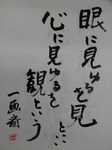 眼に見ゆるを見
といい
心に見ゆるを
観という